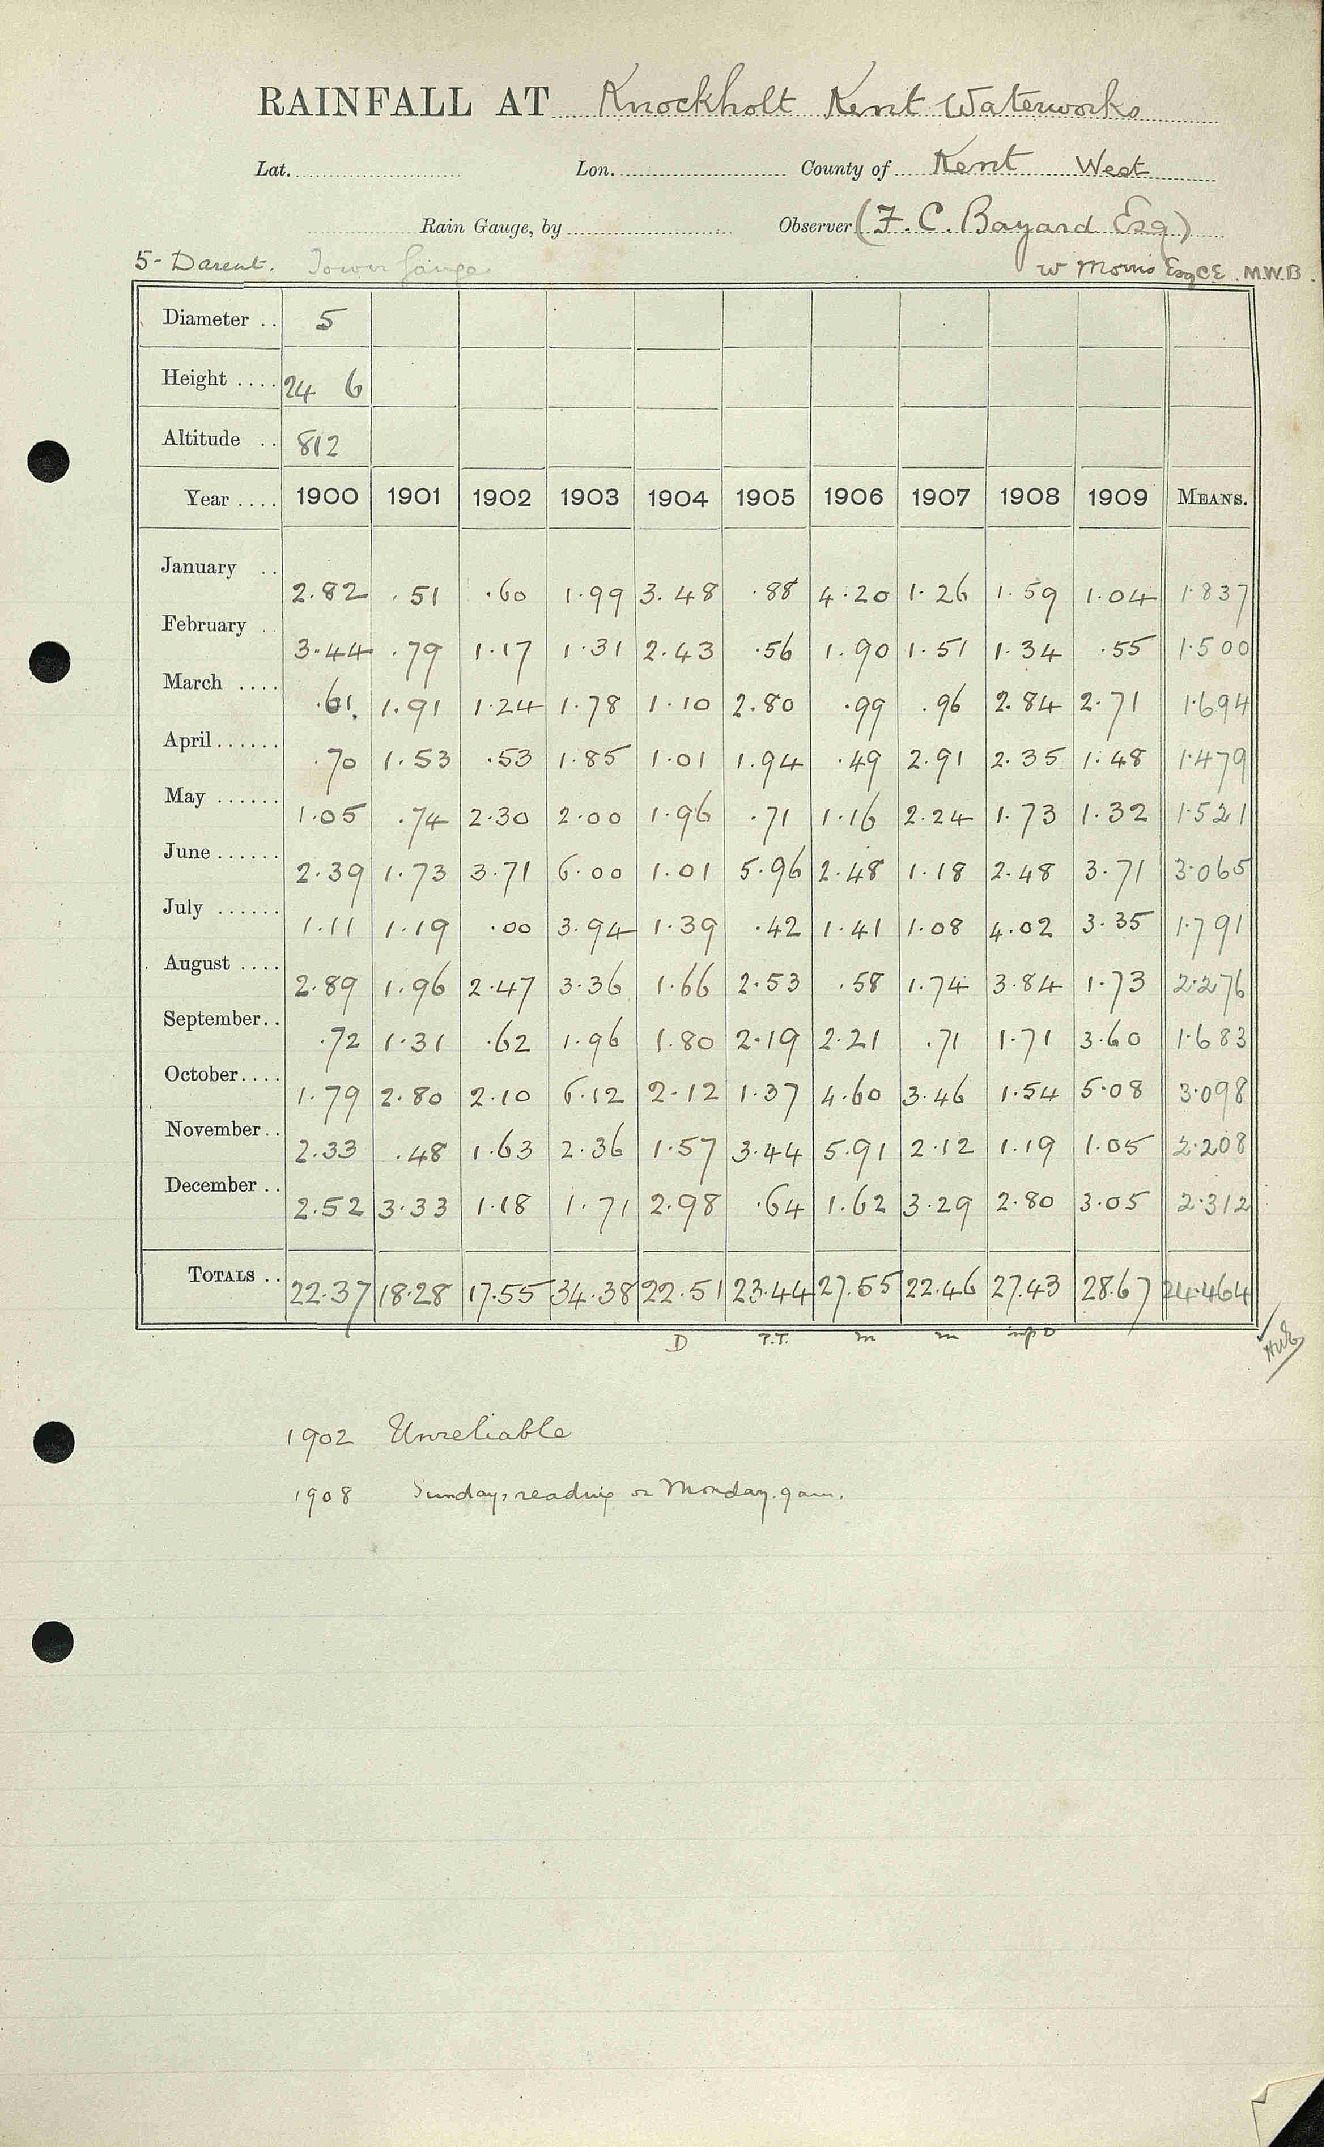 RAINFALL AT Knockholt Kent Waterworks
Lat. Lon. County of Kent West
Rain Gauge, by Observer (F. C. Bayard Esq)
5 - Darent. Tower Gauge W Morris Esq CE. M.W.B.
Diameter .. 5
Height .... 24 6
Altitude .. 812
Year .... 1900 1901 1902 1903 1904 1905 1906 1907 1908 1909 MEANS.
January .. 2.82 .51 .60 1.99 3.48 .88 4.20 1.26 1.59 1.04 1.837
February . 3.44 .79 1.17 1.31 2.43 .56 1.90 1.51 1.34 .55 1.500
March .... .61 1.91 1.24 1.78 1.10 2.80 .99 .96 2.84 2.71 1.694
April ...... .70 1.53 .53 1.85 1.01 1.94 .49 2.91 2.35 1.48 1.479
May ...... 1.05 .74 2.30 2.00 1.96 .71 1.16 2.24 1.73 1.32 1.521
June ...... 2.39 1.73 3.71 6.00 1.01 5.96 2.48 1.18 2.48 3.71 3.065
July ...... 1.11 1.19 .00 3.94 1.39 .42 1.41 1.08 4.02 3.35 1.791
August .... 2.89 1.96 2.47 3.36 1.66 2.53 .58 1.74 3.84 1.73 2.276
September .. .72 1.31 .62 1.96 1.80 2.19 2.21 .71 1.71 3.60 1.683
October .... 1.79 2.80 2.10 6.12 2.12 1.37 4.60 3.46 1.54 5.08 3.098
November .. 2.33 .48 1.63 2.36 1.57 3.44 5.91 2.12 1.19 1.05 2.208
December .. 2.52 3.33 1.18 1.71 2.98 .64 1.62 3.29 2.80 3.05 2.312
TOTALS .. 22.37 18.28 17.55 34.38 22.51 23.44 27.55 22.46 27.43 28.67 24.464
D T.T. m m
1902 Unreliable
1908 Sundays reading on Monday. 9 am.